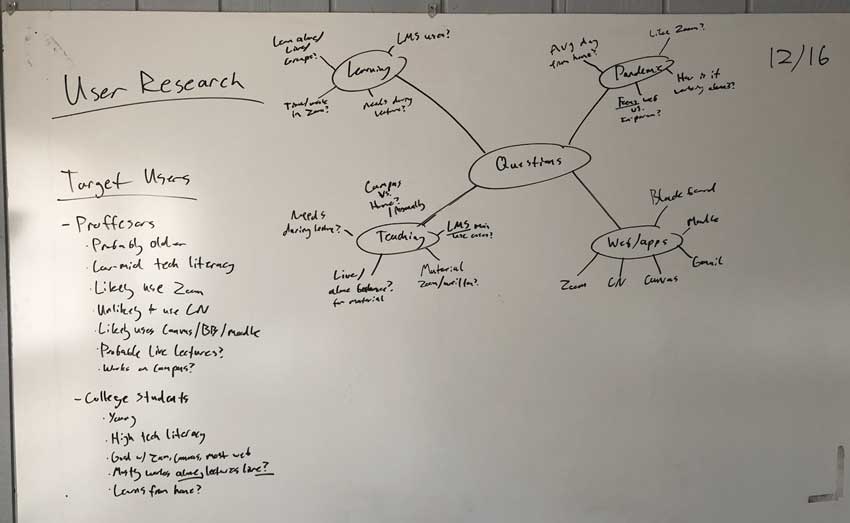 User Research
12/16
Target Users
- Proffesors
· Probably older
· Low-mid tech literacy
· Likely use Zoom
· Unlikely to use CN
· Likely uses Canvas/BB/moodle
· Probable Live lectures?
· Works on Campus?
- College Students
· Young
· High tech literacy
· Good w/ Zoom, Canvas, most web
· Mostly works alone, lectures live?
· Learns from home?
Questions
Learning
Learn alone/
Live/
Groups?
LMS uses?
Time/work
in Zoom?
Needs during
lecture?
Pandemic
Avg day
from home?
Like Zoom?
How is it
working alone?
web
vs.
in-person?
Teaching
Campus
vs.
Home?
Personally
Needs
during lecture?
LMS main
use cases?
Live/
alone
for material
Material
Zoom/written?
Web/apps
Blackboard
Moodle
Gmail
Canvas
CN
Zoom